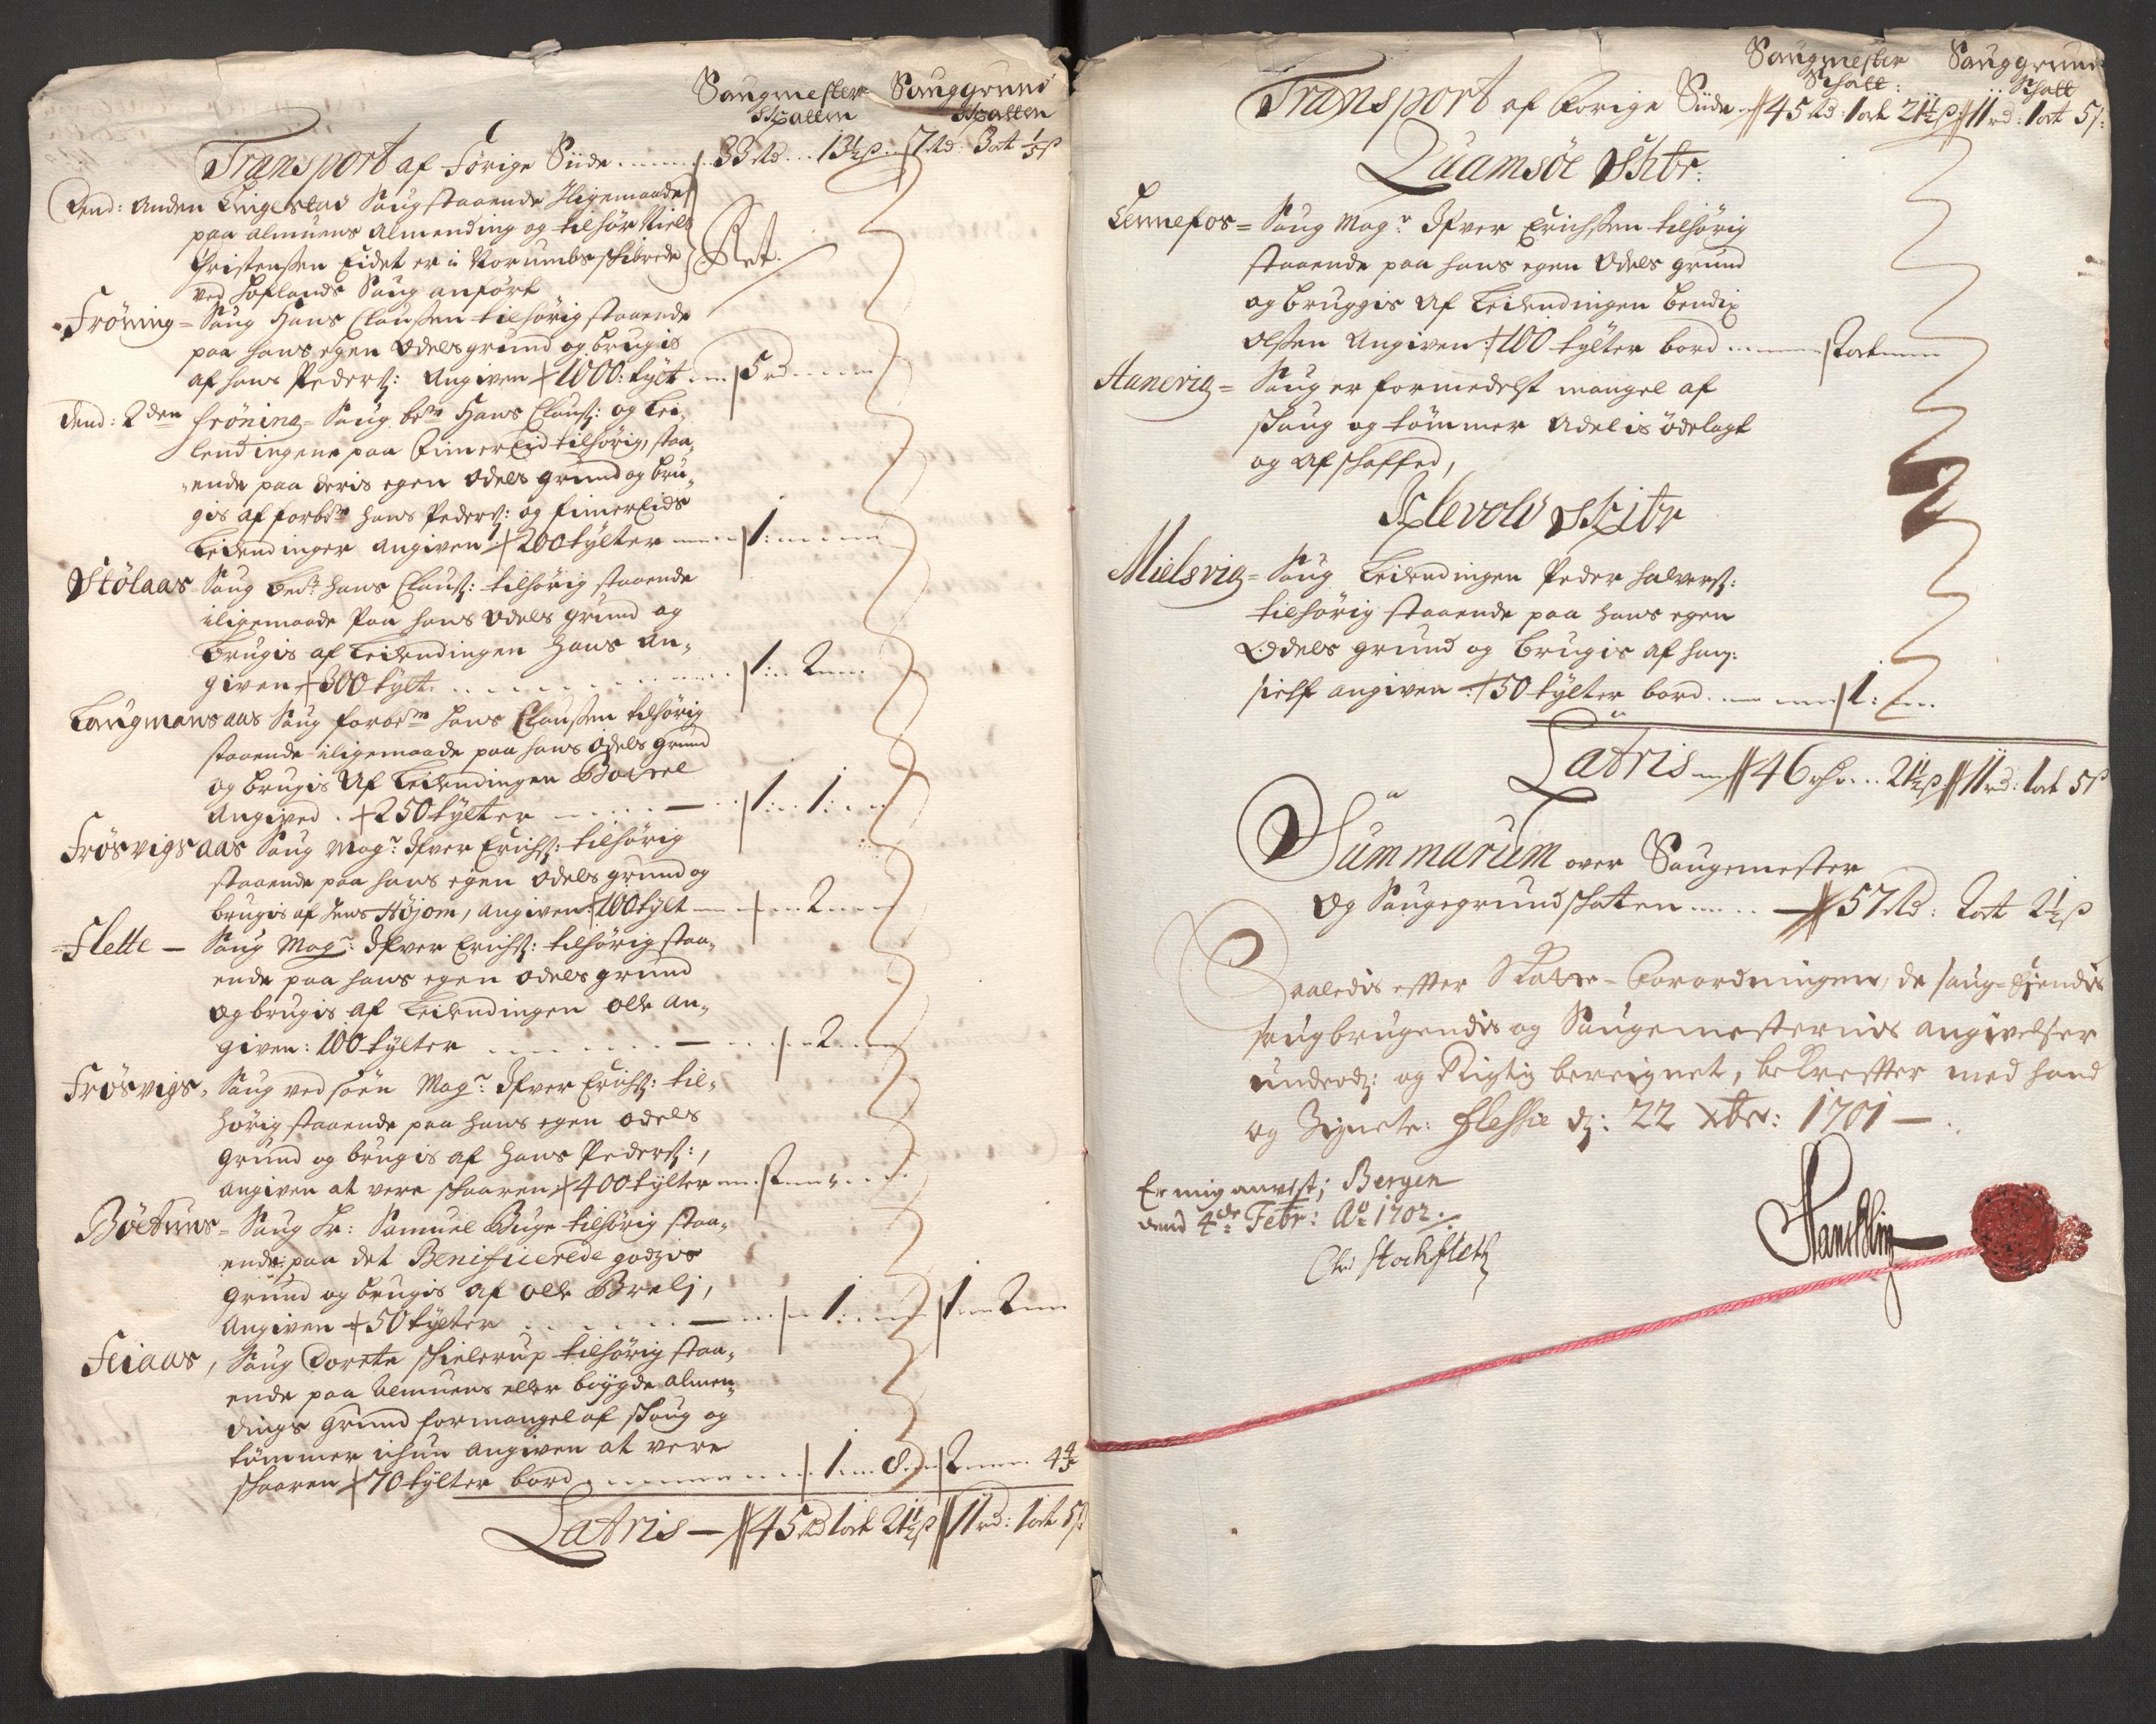 Saugmester Sauggrund
Skatten Skatten
Transport af forige Siide 33 Rd 13½ ß 7 Rd: 3 ort ⅕ ß
dend: anden Lingestad Saug staaende iligemaade
paa almuens almending og tilhør Niels
Christenssen Eidet er i Norumbs schibrede
ved Hoflands Saug anført
Ret.
Frøning = Saug Hans Claussen tilhørig staaende
paa hans egen Odels grund og brugis
af Hans Peders: Angiven 1000: tylt 5 rd
dend: 2den Frøning = Saug bete Hans Claus: og Lei-
lendingene paa FimerEid tilhørig, staa-
ende paa deris egen Odels grund og bru-
gis af forbete Hans Peders: og FimerEids
Leilendinger angiven 200 tylter 1:
Stølaas Saug bete Hans Claus: tilhørig staaende
iligemaade paa hans Odels grund og
brugis af Leilendingen Hans an-
given 300 tylt: 1: 2
Laugmans aas Saug forbete Hans Claussen tilhørig
staaende iligemaade paa hans Odels grund
og brugis af Leilendingen
Angived 250 tylter 1: 1:
Frøsvigs aas Saug Magr: Ifver Erichs: tilhørig
staaende paa hans egen Odels grund og
brugis af Jens Højom, angiven 100 tylt 2
Flette — Saug Magr: Ifver Erichs: tilhørig staa-
ende paa hans egen Odels grund
og brugis af Leilendingen Olle an-
given: 100 tylter 2
Frøsvigs = Saug ved Søen Magr: Ifver Erichs: til-
hørig staaende paa hans egen Odels
grund og brugis af Hans Peders:,
angiven at vere schaaren 400 tylter
Bøetuns = Saug Hr: Samuel Buge tilhørig staa-
ende paa det Benificerede godzis
grund og brugis af Olle Brelj,
Angiven 50 tylter 1: 1 2
Feiaas, Saug Dorete Schielerup tilhørig staa-
ende paa Almuens eller bøygde almen-
dings grund formangel af schaug og
tømmer ichun angiven at vere
schaaren 70 tylter bord 1 8 2 4⅘
Latris — 45 Rd 1 ort 21½ ß 11 rd: 1 ort 5 ß
Saugmester Sauggrund
Schatt: Schatt
Transport af forige Siide 45 Rd: 1 ort 21½ ß 11 rd: 1 ort 5 ß:
Quamsøe Schbr:
Tennefos = Saug Magr Ifver Erichssen tilhørig
staaende paa hans egen Odels grund
og bruggis af Leilendingen Bendix
Olssen Angiven: 100 tylter bord
Aanevig = Saug er formedelst mangel af
schaug og tømmer Adelis ødelagt
og afschaffed,
Klevold Skibr
Mielsvig = Saug Leilendingen Peder Halvers:
tilhørig staaende paa hans egen
Odels grund og brugis af ham:
sielf angiven 50 tylter bord 1:
Latris 46 21½ ß 11 rd: 1 ort 5 ß
Summarum over Saugemester
og Saugegrund schatten 57 Rd: 2 ort 2½ ß
Saaledis effter Skatte = Forordningen, de Saug = Ejendis
Saugbrugendis og Saugemesternis angivelser
underd: og Rigtig bereignet, bekreffter med haand
og Zignete: Flesche d: 22 Xbr: 1701 —
Er mig anvist; Bergen
dend 4de Febr: Ao 1702.
Chr Stochfleth